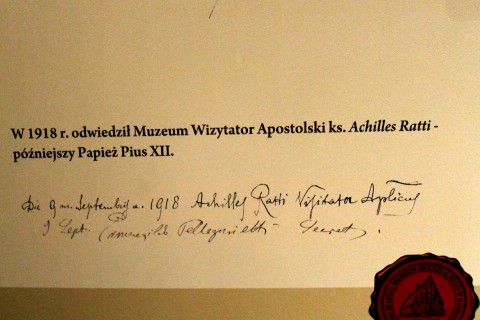 W 1918 r. odwiedził Muzeum Wizytator Apostolski ks. Achilles Ratti -
późniejszy Papież Pius XII.
Die 9 m. Septembris a. 1918 Achilles Ratti Visitator Aplicus
9 Sept Pellegrinetti Secret.